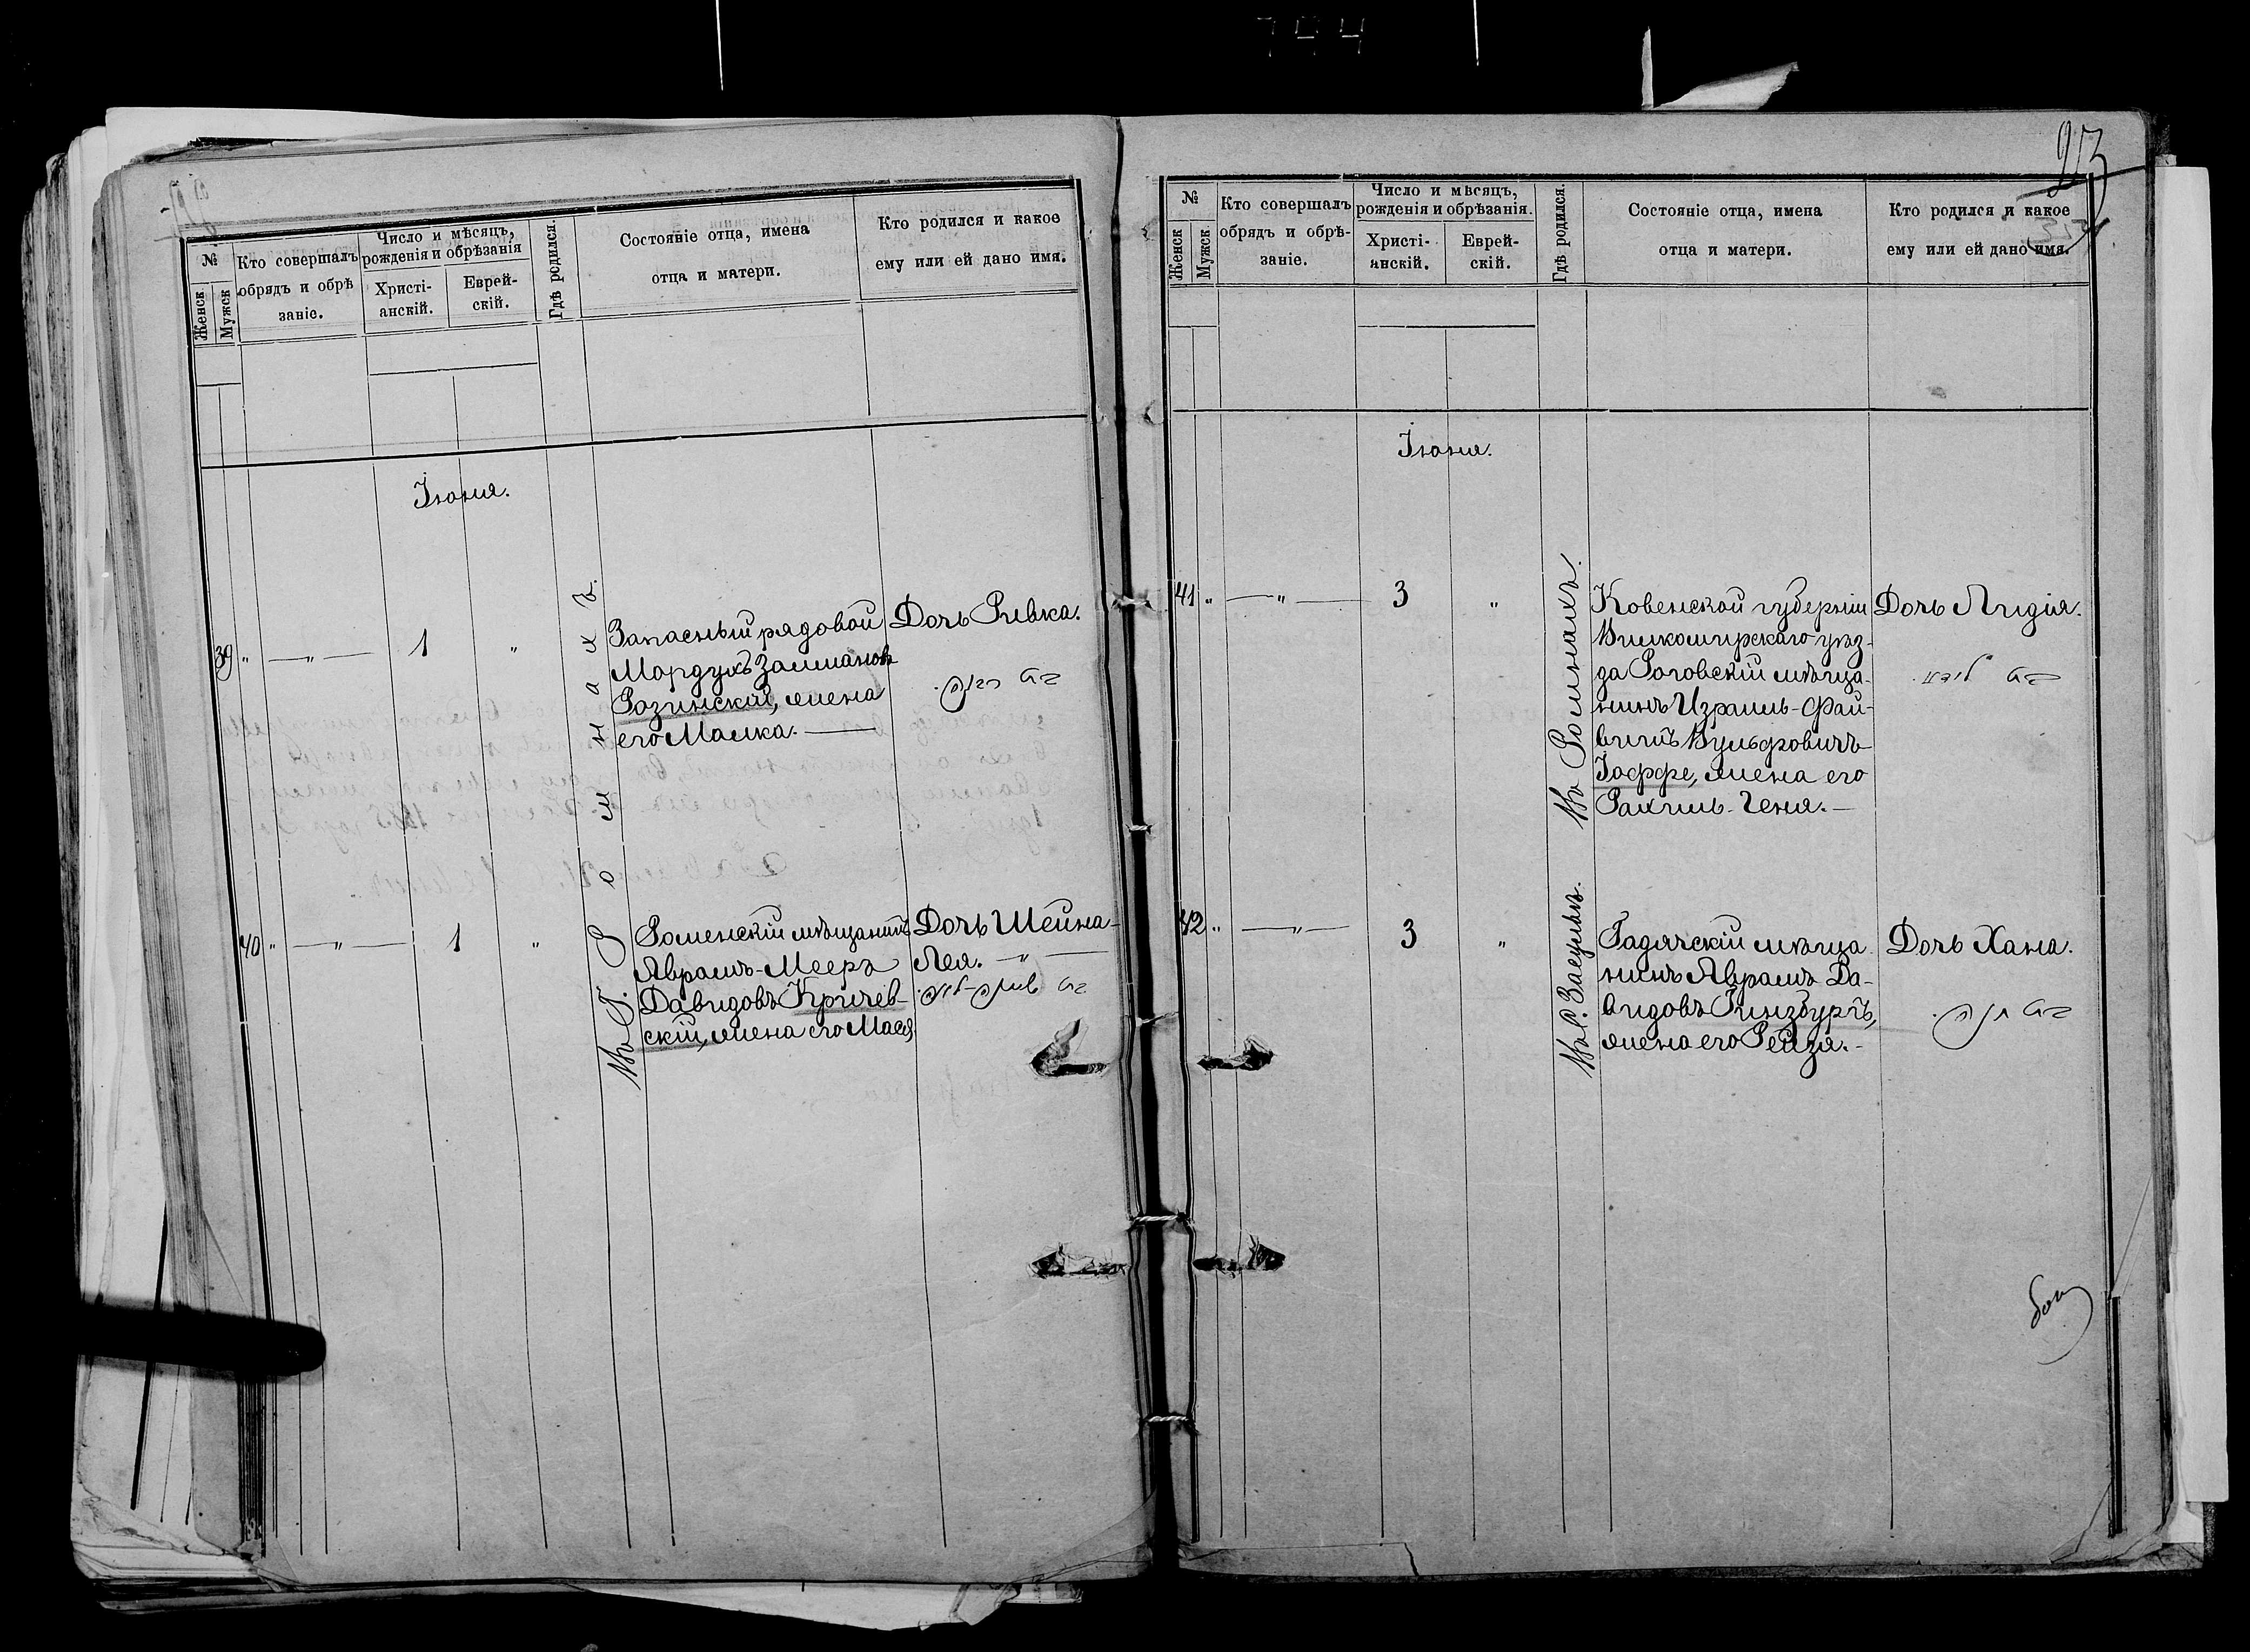 744
№
Женск
Мужск
Кто совершалъ
обрядъ и обрѣ
заніе.
Число и мѣсяцъ,
рожденія и обрѣзанія
Христі-
анскій.
Еврей-
скій.
Гдѣ родился.
Состояніе отца, имена
отца и матери.
Кто родился и какое
ему или ей дано имя.
Іюня.
39 " —"— 1 "
Въ Г. Ромнахъ.
Запасный рядовой
Мордухъ Залмановъ
Розинскій, жена
его Малка.—
Дочь Ривка.
בת רבקה.
40 " —"— 1 "
Роменскій мѣщанинъ
Аврамъ-Мееръ
Давидовъ Кричев-
скій, жена его Мася
Дочь Шейна-
Лея. —"—
בת שיינה-לאה.
213
№
Женск
Мужск
Кто совершалъ
обрядъ и обрѣ-
заніе.
Число и мѣсяцъ,
рожденія и обрѣзанія.
Христі-
анскій.
Еврей-
скій.
Гдѣ родился.
Состояніе отца, имена
отца и матери.
Кто родился и какое
ему или ей дано имя.
Іюня.
41 " —"— 3 "
Въ Ромнахъ.
Ковенской губерніи
Вилкомирскаго уѣз-
да Роговскій мѣща-
нинъ Израиль-Фай-
вишъ Вульфовичъ
Іоффе, жена его
Рахиль-Геня.—
Дочь Лидія.
בת
42 " —"— 3 "
Въ с. Засульѣ.
Гадячскій мѣща
нинъ Аврамъ Да-
видовъ Гинзбургъ,
жена его Рейзя.-
Дочь Хана.
בת חנה.